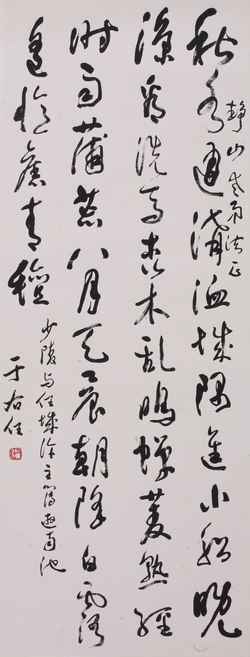 靜山老弟法正
秋水通溝洫城隅進小船晚
涼看洗馬森木亂鳴蟬菱熟經
時雨蒲荒八月天晨朝降白露
遙憶舊青氈
少陵与任城許主簿遊南池
于右任